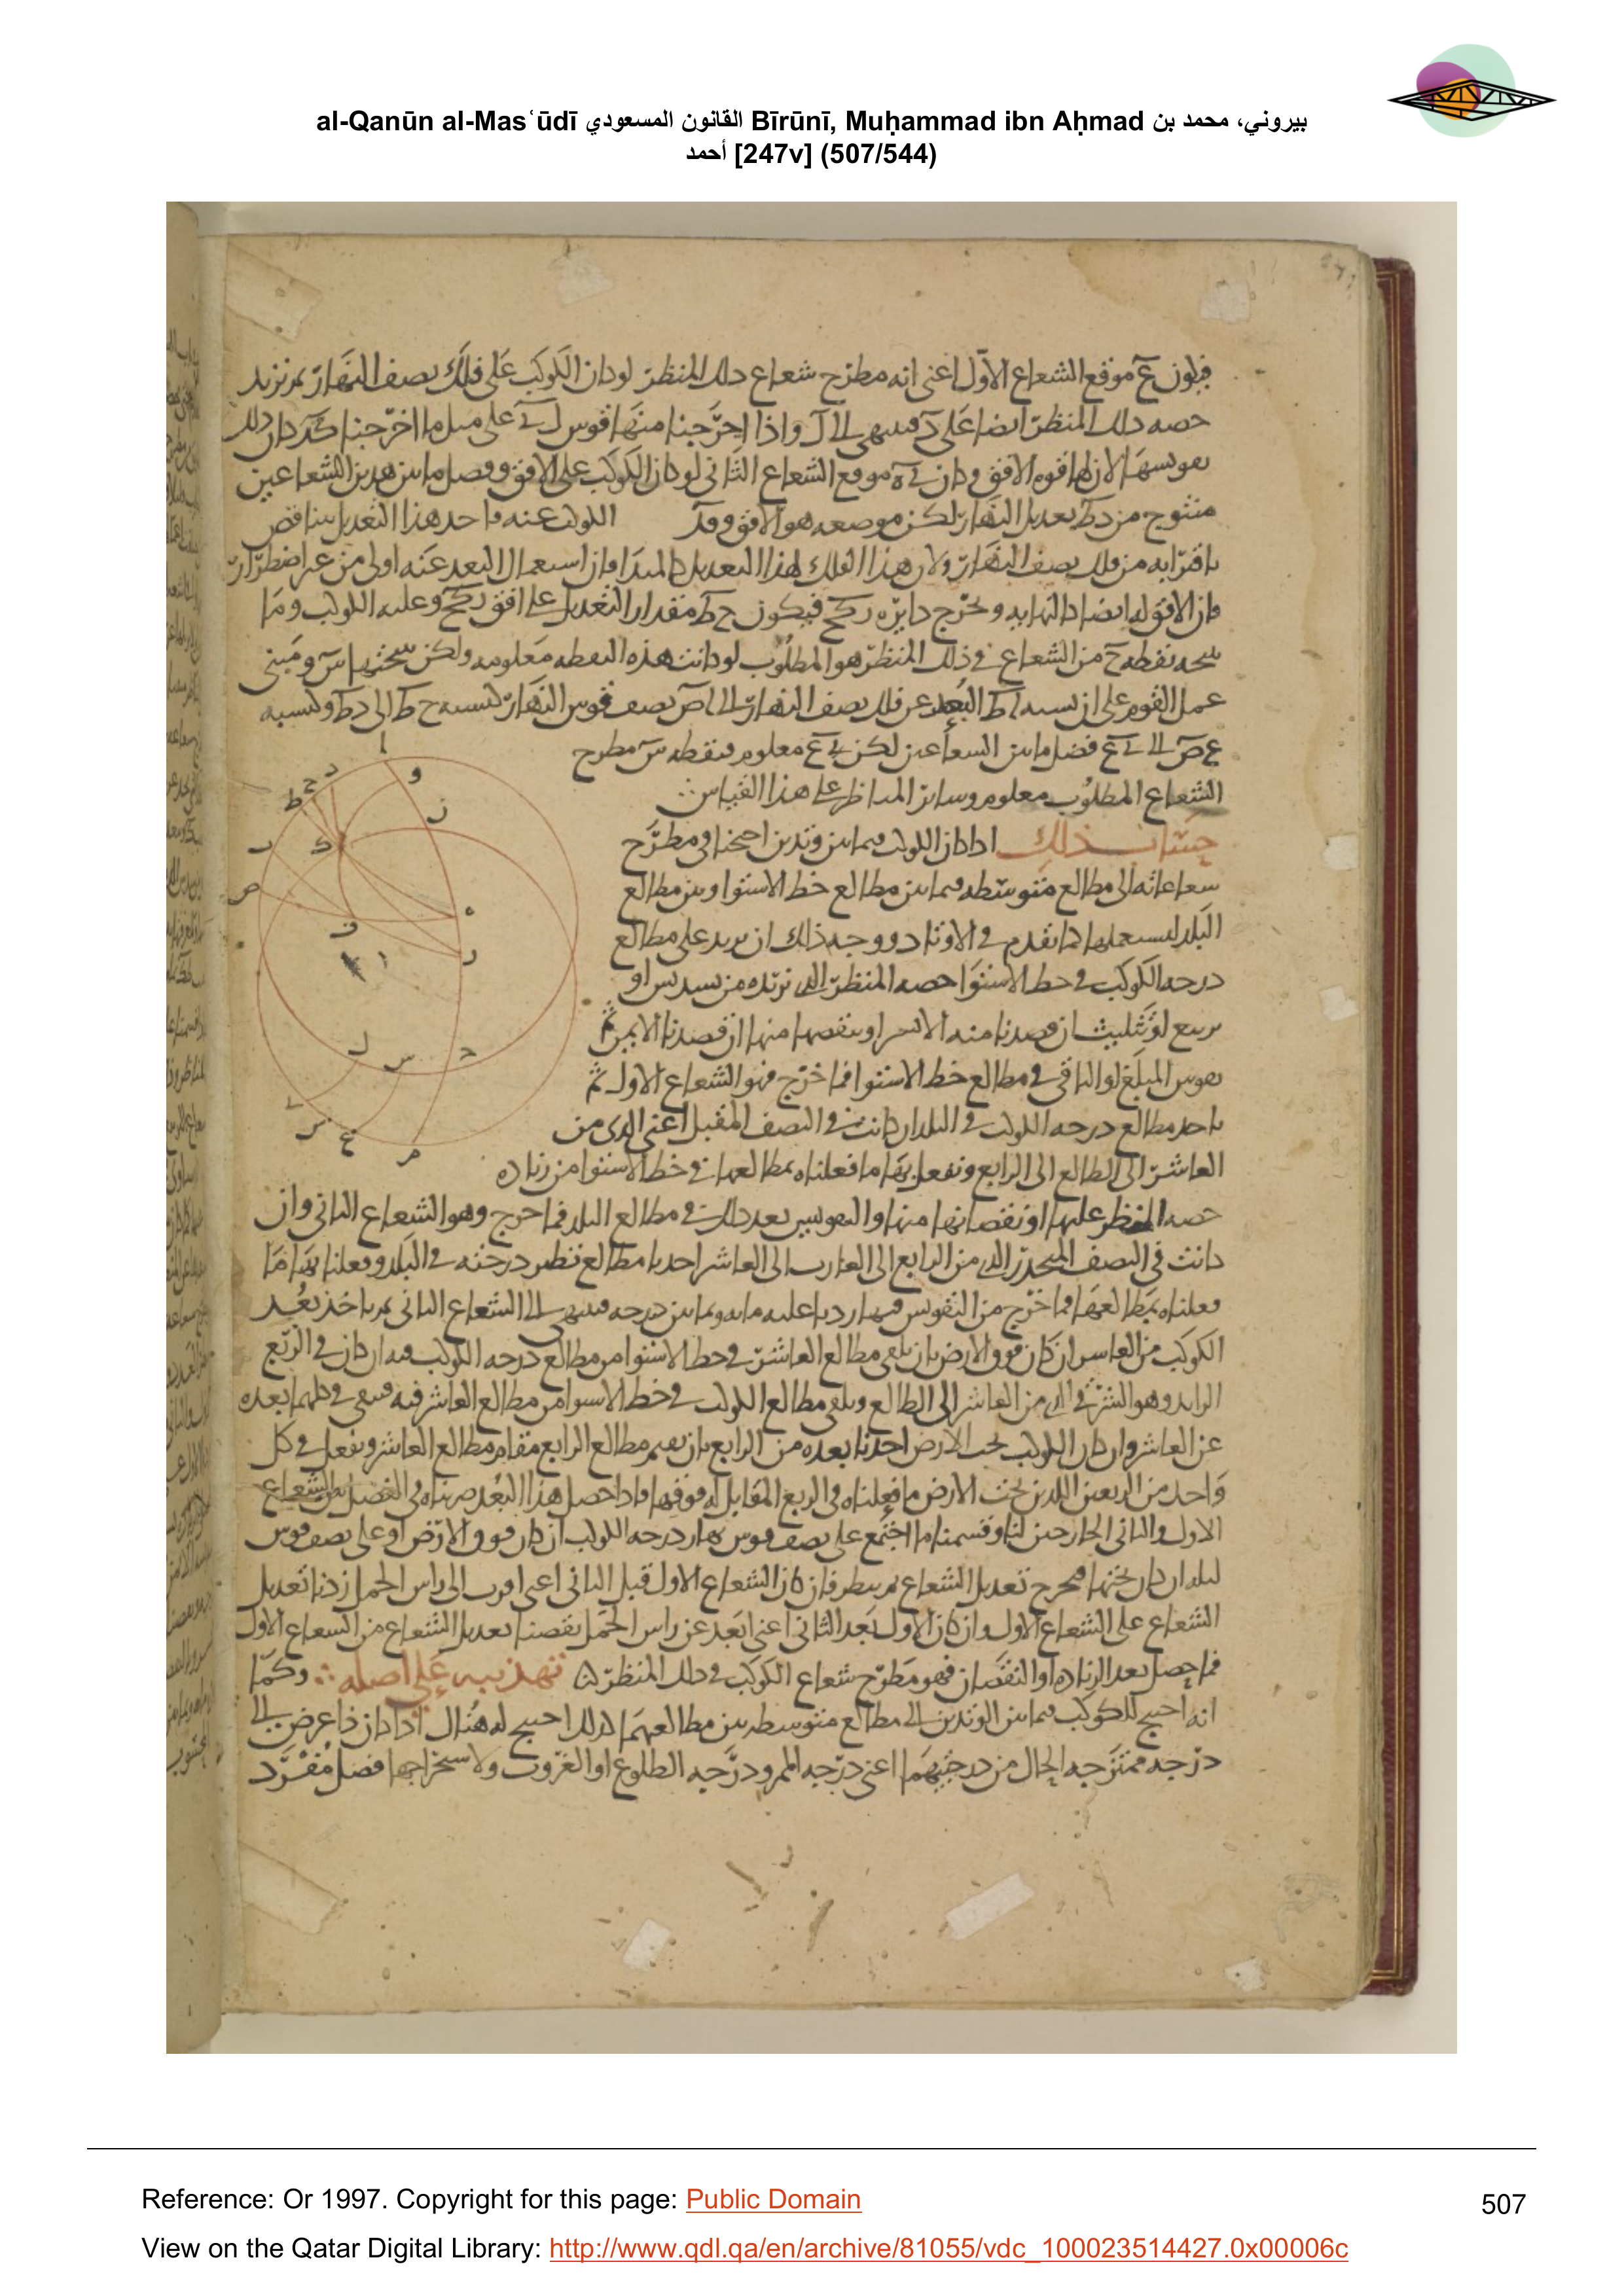 al-Qanūn al-Masʿūdī القانون المسعودي Bīrūnī, Muḥammad ibn Aḥmad بيروني، محمد بن
أحمد [247v] (507/544)
فيكون ع موقع الشعاع الاول اعنى انه مطرح شعاع ذلك المنظر لو كان الكوكب على فلك نصف النهار ثم نزيد
حصه ذلك المنظر ايضا على واذا اخرجنا منها قوس على مثل ما اخرجنا كان ذلك
الافق وكان موقع الشعاع الثانى لو كان الكوكب على الافق وفضل ما بين هذين الشعاعين
النهار لكن موضعه هو الافق وقد الكوكب عنه فاخذ هذا التعديل يتناقص
باقترابه من فلك نصف النهار ولان هذا الفلك لهذا التعديل كالمبدا فان استعمال البعد عنه اولى من غير اضطرار
فان الافق له ايضا كالنهايه ونخرج دايره فيكون مقدار التعديل على افق وعليه الكوكب وما
نقطه ح من الشعاع فى ذلك المنظر هو المطلوب لو كانت هذه النقطه معلومه ولكن ومبنى
عمل القوم على ان نسبه البعد عن فلك نصف النهار الى نصف قوس النهار كنسبه ح ط الى د ط وكنسبه
فضل ما بين الشعاعين لكن معلوم فنقطه س مطرح
الشعاع المطلوب معلوم وساير المناظر على هذا القياس
حساب ذلك اذا كان الكوكب فيما بين وتدين احتجنا فى مطرح
شعاعاته الى مطالع متوسطه فيما بين مطالع خط الاستوا وبين مطالع
البلد لنستعملها كما تقدم فى الاوتاد ووجه ذلك ان نزيد على مطالع
درجه الكوكب فى خط الاستوا حصه المنظر الذى نريده من تسديس او
تربيع او تثليث ان قصدنا منه الايسر او ننقصها منها ان قصدنا الايمن ثم
نقوس المبلغ او الباقى فى مطالع خط الاستوا فما خرج فهو الشعاع الاول ثم
ناخذ مطالع درجه الكوكب فى البلد ان كانت فى النصف المقبل اعنى الذى من
العاشر الى الطالع الى الرابع ونفعل بها ما فعلناه بمطالعها فى خط الاستوا من زياده
حصه المنظر عليها او نقصانها منها والتقويس بعد ذلك فى مطالع البلد فما خرج وهو الشعاع الثانى وان
كانت فى النصف المنحدر الذى من الرابع الى الغارب الى العاشر اخذنا مطالع نظير درجته فى البلد وفعلنا بها ما
فعلناه بمطالعها فما خرج من التقويس فيها زدنا عليه مايه وثمانين درجه فينتهى الى الشعاع الثانى ثم ناخذ بعد
الكوكب من العاشر ان كان فوق الارض بان نلقى مطالع العاشر فى خط الاستوا من مطالع درجه الكوكب فيه ان كان فى الربع
الزايد وهو الشرقى الذى من العاشر الى الطالع ونلقى مطالع الكوكب فى خط الاستوا من مطالع العاشر فيه فيبقى فى كليهما بعده
عن العاشر وان كان الكوكب تحت الارض اخذنا بعده من الرابع بان نقيم مطالع الرابع مقام مطالع العاشر ونفعل فى كل
واحد من الربعين اللذين تحت الارض ما فعلناه فى الربع المقابل له فوقها فاذا حصل هذا البعد ضربناه فى الفضل بين الشعاع
الاول والثانى الخارجين لنا وقسمنا ما اجتمع على نصف قوس نهار درجه الكوكب ان كان فوق الارض او على نصف قوس
ليله ان كان تحتها فيخرج تعديل الشعاع ثم ننظر فان كان الشعاع الاول قبل الثانى اعنى اقرب الى راس الحمل زدنا تعديل
الشعاع على الشعاع الاول وان كان الاول بعد الثانى اعنى ابعد عن راس الحمل نقصنا تعديل الشعاع من الشعاع الاول
فما حصل بعد الزياده او النقصان فهو مطرح شعاع الكوكب فى ذلك المنظر تهذيب على اصله وكما
انه احتيج للكوكب فيما بين الوتدين الى مطالع متوسطه بين مطالعهما كذلك احتيج له هنالك اذا كان ذا عرض الى
درجه ممتزجه الحال من درجتيهما اعنى درجه الممر ودرجه الطلوع او الغروب ولاستخراجها فضل مفرد
Reference: Or 1997. Copyright for this page: Public Domain
507
View on the Qatar Digital Library: http://www.qdl.qa/en/archive/81055/vdc_100023514427.0x00006c